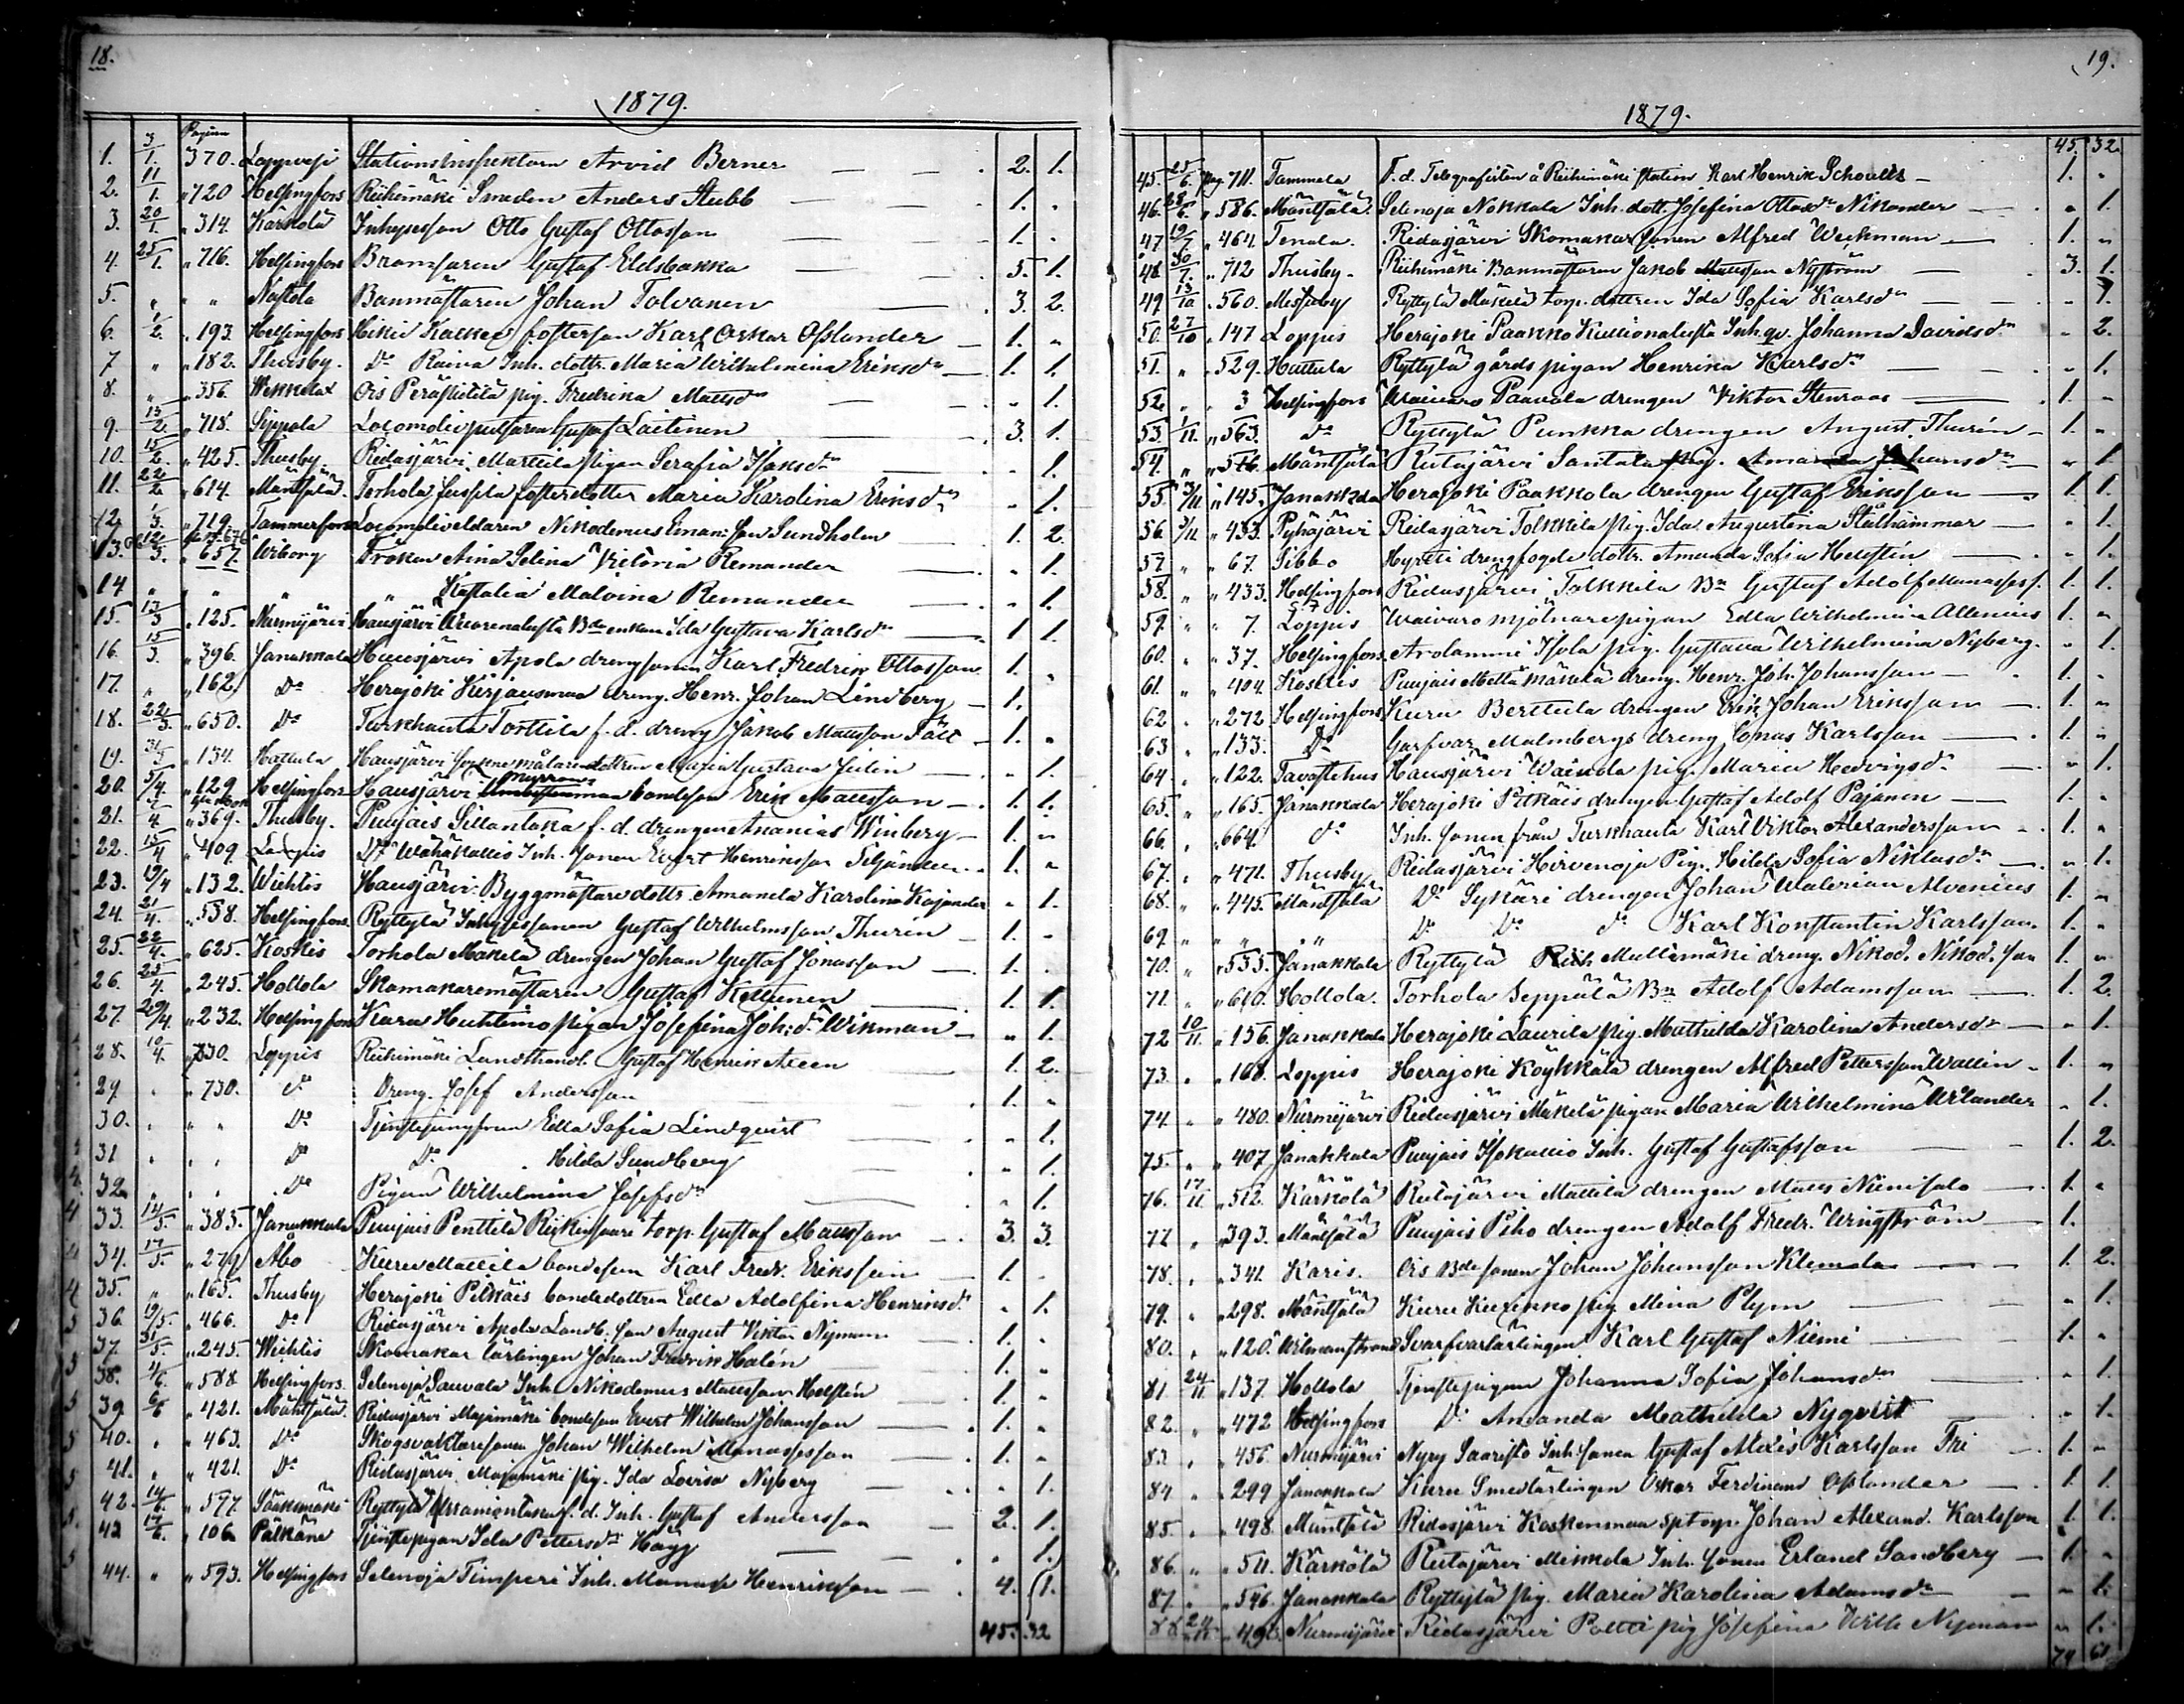 18.
1879.
Pagina
1. 3/1. 370. Loppis Stationsinspektorn Arvid Berner 2. 1.
2. 11/1. " 720 Helsingfors Riihimäki Smeden Anders Stubb 1. "
3. 20/1. " 314. Kärkölä Inhysesson Otto Gustaf Ottosson 1. "
4. 25/1. " 716. Helsingfors Bromsaren Gustaf Eldsbacka 5. 1.
5. " " " Nastola Banmästaren Johan Tolvanen 3. 2.
6. 1/2. " 193. Helsingfors Hikiä fosterson Karl Oskar Osslander 1. "
7 " " 182. Thusby. Do Inh. dottr. Maria Wilhelmina Eriksdr 1. 1.
8. " " 356. Ois Peräskitilä pig. Fredrika Mattsdr " 1.
9. 13/2. " 718. Sippola Gustaf Laitinen 3. 1.
10. 15/2. " 425. Thusby Ridasjärvi Marttila pigan Serafia Isaksdr " 1.
11. 22/2. " 614. Mäntsälä. Torhola Jussila fosterdotter Maria Karolina Eriksdr " 1.
12. 1/3. " 719. Tammerfors Locomotiveldaren Nikodemus Eman: son Sundholm 1. 2.
13. 12/3. " 657. Wiborg Fröken Aina Selina Victoria Remander " 1.
14 " " " " Malvina Remander " 1.
15. 13/3 " 125. Nurmijärvi Hausjärvi enkan Ida Gustava Karlsdr 1 1.
16. 15/3. " 396. Janakkala Hausjärvi Apola drengsonen Karl Fredrik Ottosson 1. "
17. " " 162. Do Herajoki Kirjausmaa dreng. Henr. Johan Lindberg 1.
18. 22/3. " 650. Do Turkhauta Torttila f. d. dreng Jakob Mattsson Fält 1. "
19. 31/3 " 134. Hattula Hausjärvi målaredottren Maria Gustava Julin " 1.
20. 5/4. " 129 Helsingfors Hausjärvi bondeson Erik Mattsson 1. 1.
21. 7/4. " 369. Thusby. Puujais Sillantaka f. d. drengen Ananias Winberg 1. "
22. 15/4 " 409. Loppis Do Wähäkallis Inh. sonen Evert Henriksson Siljander 1. "
23. 19/4 " 132. Wichtis Hausjärvi Byggmästare dottr. Amanda Karolina Kajander " 1.
24. 21/4. " 538. Helsingfors. Ryttylä Inhysessonen Gustaf Wilhelmsson Thurén 1. "
25. 22/4. " 625. Koskis Torhola Mäkelä drengen Johan Gustaf Jonasson 1. "
26. 25/4. " 245. Hollola Skomakaremästaren Gustaf Kettunen 1. 1.
27. 29/4. " 232. Helsingfors Karu Huhtimo pigan Josefina Joh: dr Wikman " 1.
28. 10/4. " 730. Loppis Riihimäki Landthandl. Gustaf Henrik Axeen 1. 2.
29 " " 730. do Dreng. Josef Andersson 1. "
30. " " " Do Tjenstejungfrun Edla Sofia Lindqvist " 1.
31 " " " Do Do Hilda Sundberg " 1.
32. " " " Do Pigan Wilhelmina Josefsdr " 1.
33. 14/5. " 383. Janakkala Puujais Penttilä torp. Gustaf Mattsson 3. 3.
34. 17/5. " 279 Åbo Kuru Mattila bondeson Karl Fredr. Eriksson 1. "
35. " " 165. Thusby Herajoki Pitkäis bondedottren Edla Adolfina Henriksdr " 1.
36. 19/5. " 466. Do Ridasjärvi Apola Landb. son August Viktor Nyman 1. "
37. 31/5. " 245. Wichtis Skomakar lärlingen Johan Fredrik Halén 1. "
38. 4/6. " 588 Helsingfors. Selenoja Sauvala Inh. Nikodemus Mattsson Helstén 1. "
39. 6/6 " 421. Mäntsälä. Ridasjärvi Majamäki bondeson Evert Wilhelm Johansson 1. "
40. " " 463. Do Skogsvaktaresonen Johan Wilhelm Manassesson 1. "
41. " " 421. Do Ridasjärvi Majamäki pig. Ida Lovisa Nyberg " 1.
42. 14/6. " 577. Sääksmäki Ryttylä f. d. Inh. Gustaf Andersson 2. 1.
43 17/6. " 106. Pälkäne Tjenstepigan Ida Pettersdr Hägg " 1.
44. " " 593. Helsingfors Selenoja Timperi Inh. Manasse Henriksson 4. 1.
45. 32
19.
1879.
45. 32.
45. 25/6. pag. 711. Tammela F. d. Telegrafisten å Riihimäki station Karl Henrik Schoultz 1. "
46. 28/6. " 586. Mäntsälä. Selenoja Nokkala Inh. dott. Josefina Ottosdr Nikander " 1.
47 19/7 " 464. Tenala. Ridasjärvi Skomakarsonen Alfred Weckman 1. "
48. 30/7. " 712 Thusby. Riihimäki Banmästaren Jakob Mattsson Nyström 3. 1.
49 13/10 " 560. Messuby Ryttylä Mäkelä torp. dottren Ida Sofia Karlsdr " 1.
50. 27/10 " 147 Loppis Herajoki Paakko Inh. qv. Johanna Davidsdr " 2.
51. " " 529. Hattula Ryttylä gårds pigan Henrika Karlsdr " 1.
52. " " 3 Helsingfors Paavola drengen Viktor Stenroos 1. "
53. 1/11. " 563. Do Ryttylä Punkka drengen August Thurén 1. "
54. " " 516. Mäntsälä Ridasjärvi Santala pig. Amanda Johansdr " 1.
55. 3/11 " 145. Janakkala Herajoki Paakkola drengen Gustaf Eriksson 1. 1.
56. 3/11 " 433. Pyhäjärvi Ridasjärvi Tolkkila pig. Ida Augustina Stålhammar " 1.
57. " " 67. Sibbo drengfogde dottr. Amanda Sofia Helstén " 1.
58. " " 433. Helsingfors Ridasjärvi Tolkkila Bn Gustaf Adolf Manasses s. 1. 1.
59. " " 7. Loppis Waivaro mjölnarepigan Edla Wilhelmina Allenius 1. "
60. " " 37. Helsingfors Arolammi Isola pig. Gustava Wilhelmina Nyberg. " 1.
61. " " 404. Koskis Puujais Mäkelä dreng. Henr. Joh. Johansson 1. "
62 " " 272 Helsingfors Kuru Berttula drengen Erik Johan Eriksson 1. "
63 " " 133. Do Garfvar Malmbergs dreng Jonas Karlsson 1. "
64. " " 122. Tavastehus Hausjärvi Wainola pig. Maria Hedvigsdr " 1.
65. " " 165. Janakkala Herajoki Pitkäis drengen Gustaf Adolf Pajanen 1. "
66. " " 664. do Inh. sonen från Turkhauta Karl Viktor Alexandersson 1. "
67. " " 471. Thusby Ridasjärvi Hirvenoja Pig. Hilda Sofia Niklasdr " 1.
68. " " 445. Mäntsälä Do Sykäri drengen Johan Walerian Alvenius 1. "
69. " " " " Do Do do Karl Konstantin Karlsson. 1. "
70. " " 555. Janakkala Ryttylä Mullimäki dreng. Nikod. Nikod. son 1. "
71. " " 610. Hollola. Torhola Seppälä Bn Adolf Adamsson 1. 2.
72 10/11. " 156. Janakkala Herajoki Laurila pig. Mathilda Karolina Andersdr " 1.
73. " " 168. Loppis Herajoki Köykkälä drengen Alfred Pettersson Wallin 1. "
74. " " 480. Nurmijärvi Ridasjärvi Mäkelä pigan Maria Wilhelmina Wilander " 1.
75. " " 407. Janakkala Puujais Isokallio Inh. Gustaf Gustafsson 1. 2.
76. 17/11. " 512. Kärkölä Ridasjärvi Mattila drengen Matts Niemisalo 1. "
77 " " 393. Mäntsälä Puujais Piho drengen Adolf Fredr. Wingström 1.
78. " " 341. Karis. Ois Bdesonen Johan Johansson Klemola 1. 2.
79. " " 298. Mäntsälä Kuru pig. Mina Plym " 1.
80. " " 120. Wilmanstrand Svarfvarlärlingen Karl Gustaf Niemi 1. "
81. 24/11 " 137. Hollola Tjenstepigan Johanna Sofia Johansdr " 1.
82. " " 472 Helsingfors Do Amanda Mathilda Nyqvist " 1.
83. " " 456. Nurmijärvi Nyry Saaristo Inh. sonen Gustaf Alexis Karlsson Fri 1. "
84 " " 299 Janakkala Kuru Smedlärlingen Oskar Ferdinand Osslander 1. 1.
85. " " 498. Mäntsälä Ridasjärvi Koskenmaa Johan Alexand. Karlsson 1. 1.
86. " " 511. Kärkölä Ridasjärvi Mikkola Inh. sonen Erland Sandberg 1. "
87. " " 546. Janakkala Ryttylä pig. Maria Karolina Adamsdr " 1.
88 24/11 " 496. Nurmijärvi Ridasjärvi Poltti pig. Josefina Wilh. Nyman " 1.
79 61